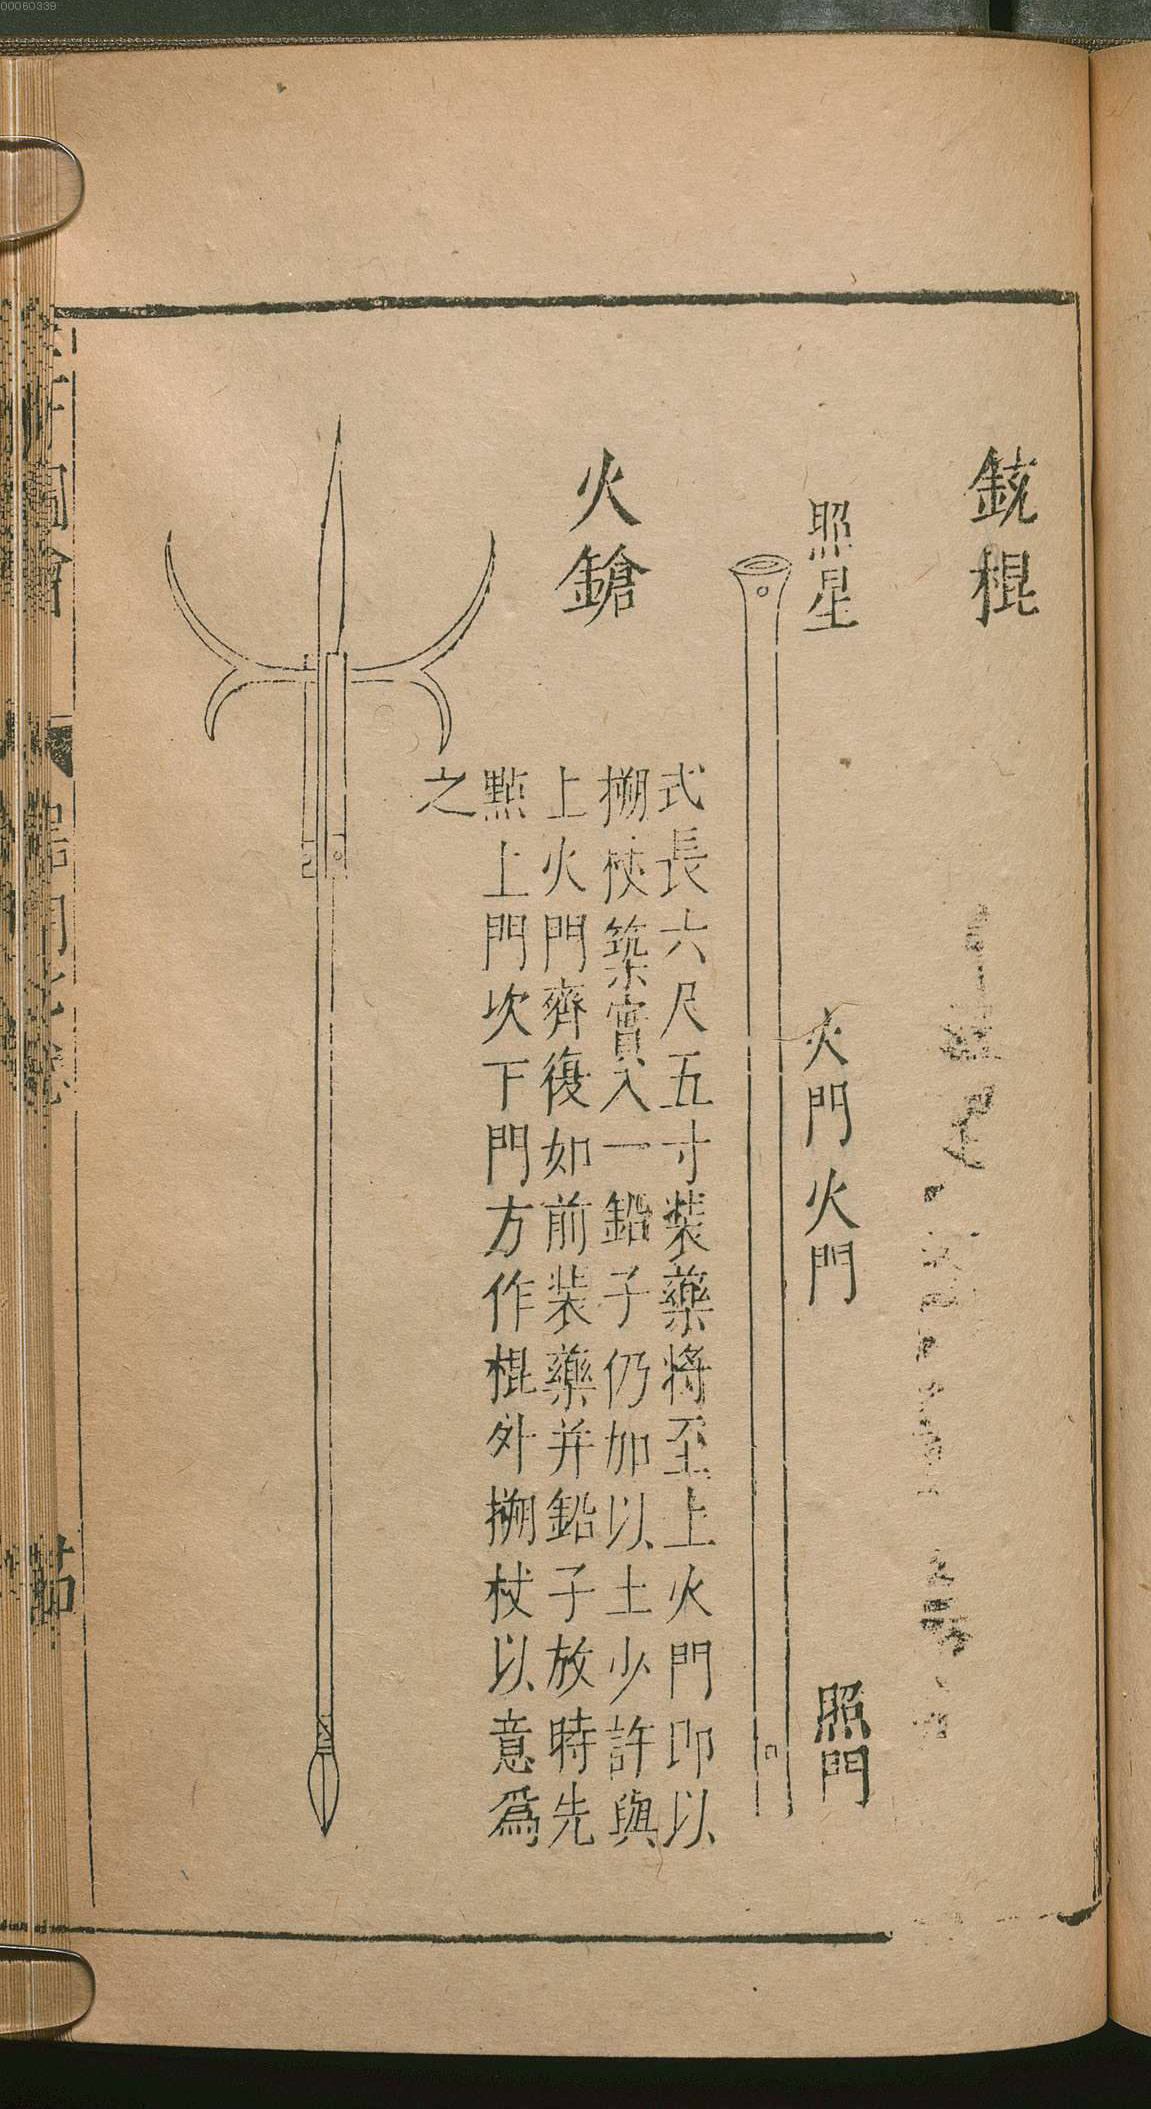 00060339
銃棍
照星
火門
火門
照門
式長六尺五寸裝藥將至上火門即以
搠杖築實入一鉛子仍加以土少許與
上火門齊復如前裝藥并鉛子放時先
點上門次下門方作棍外搠杖以意爲
之
火鎗